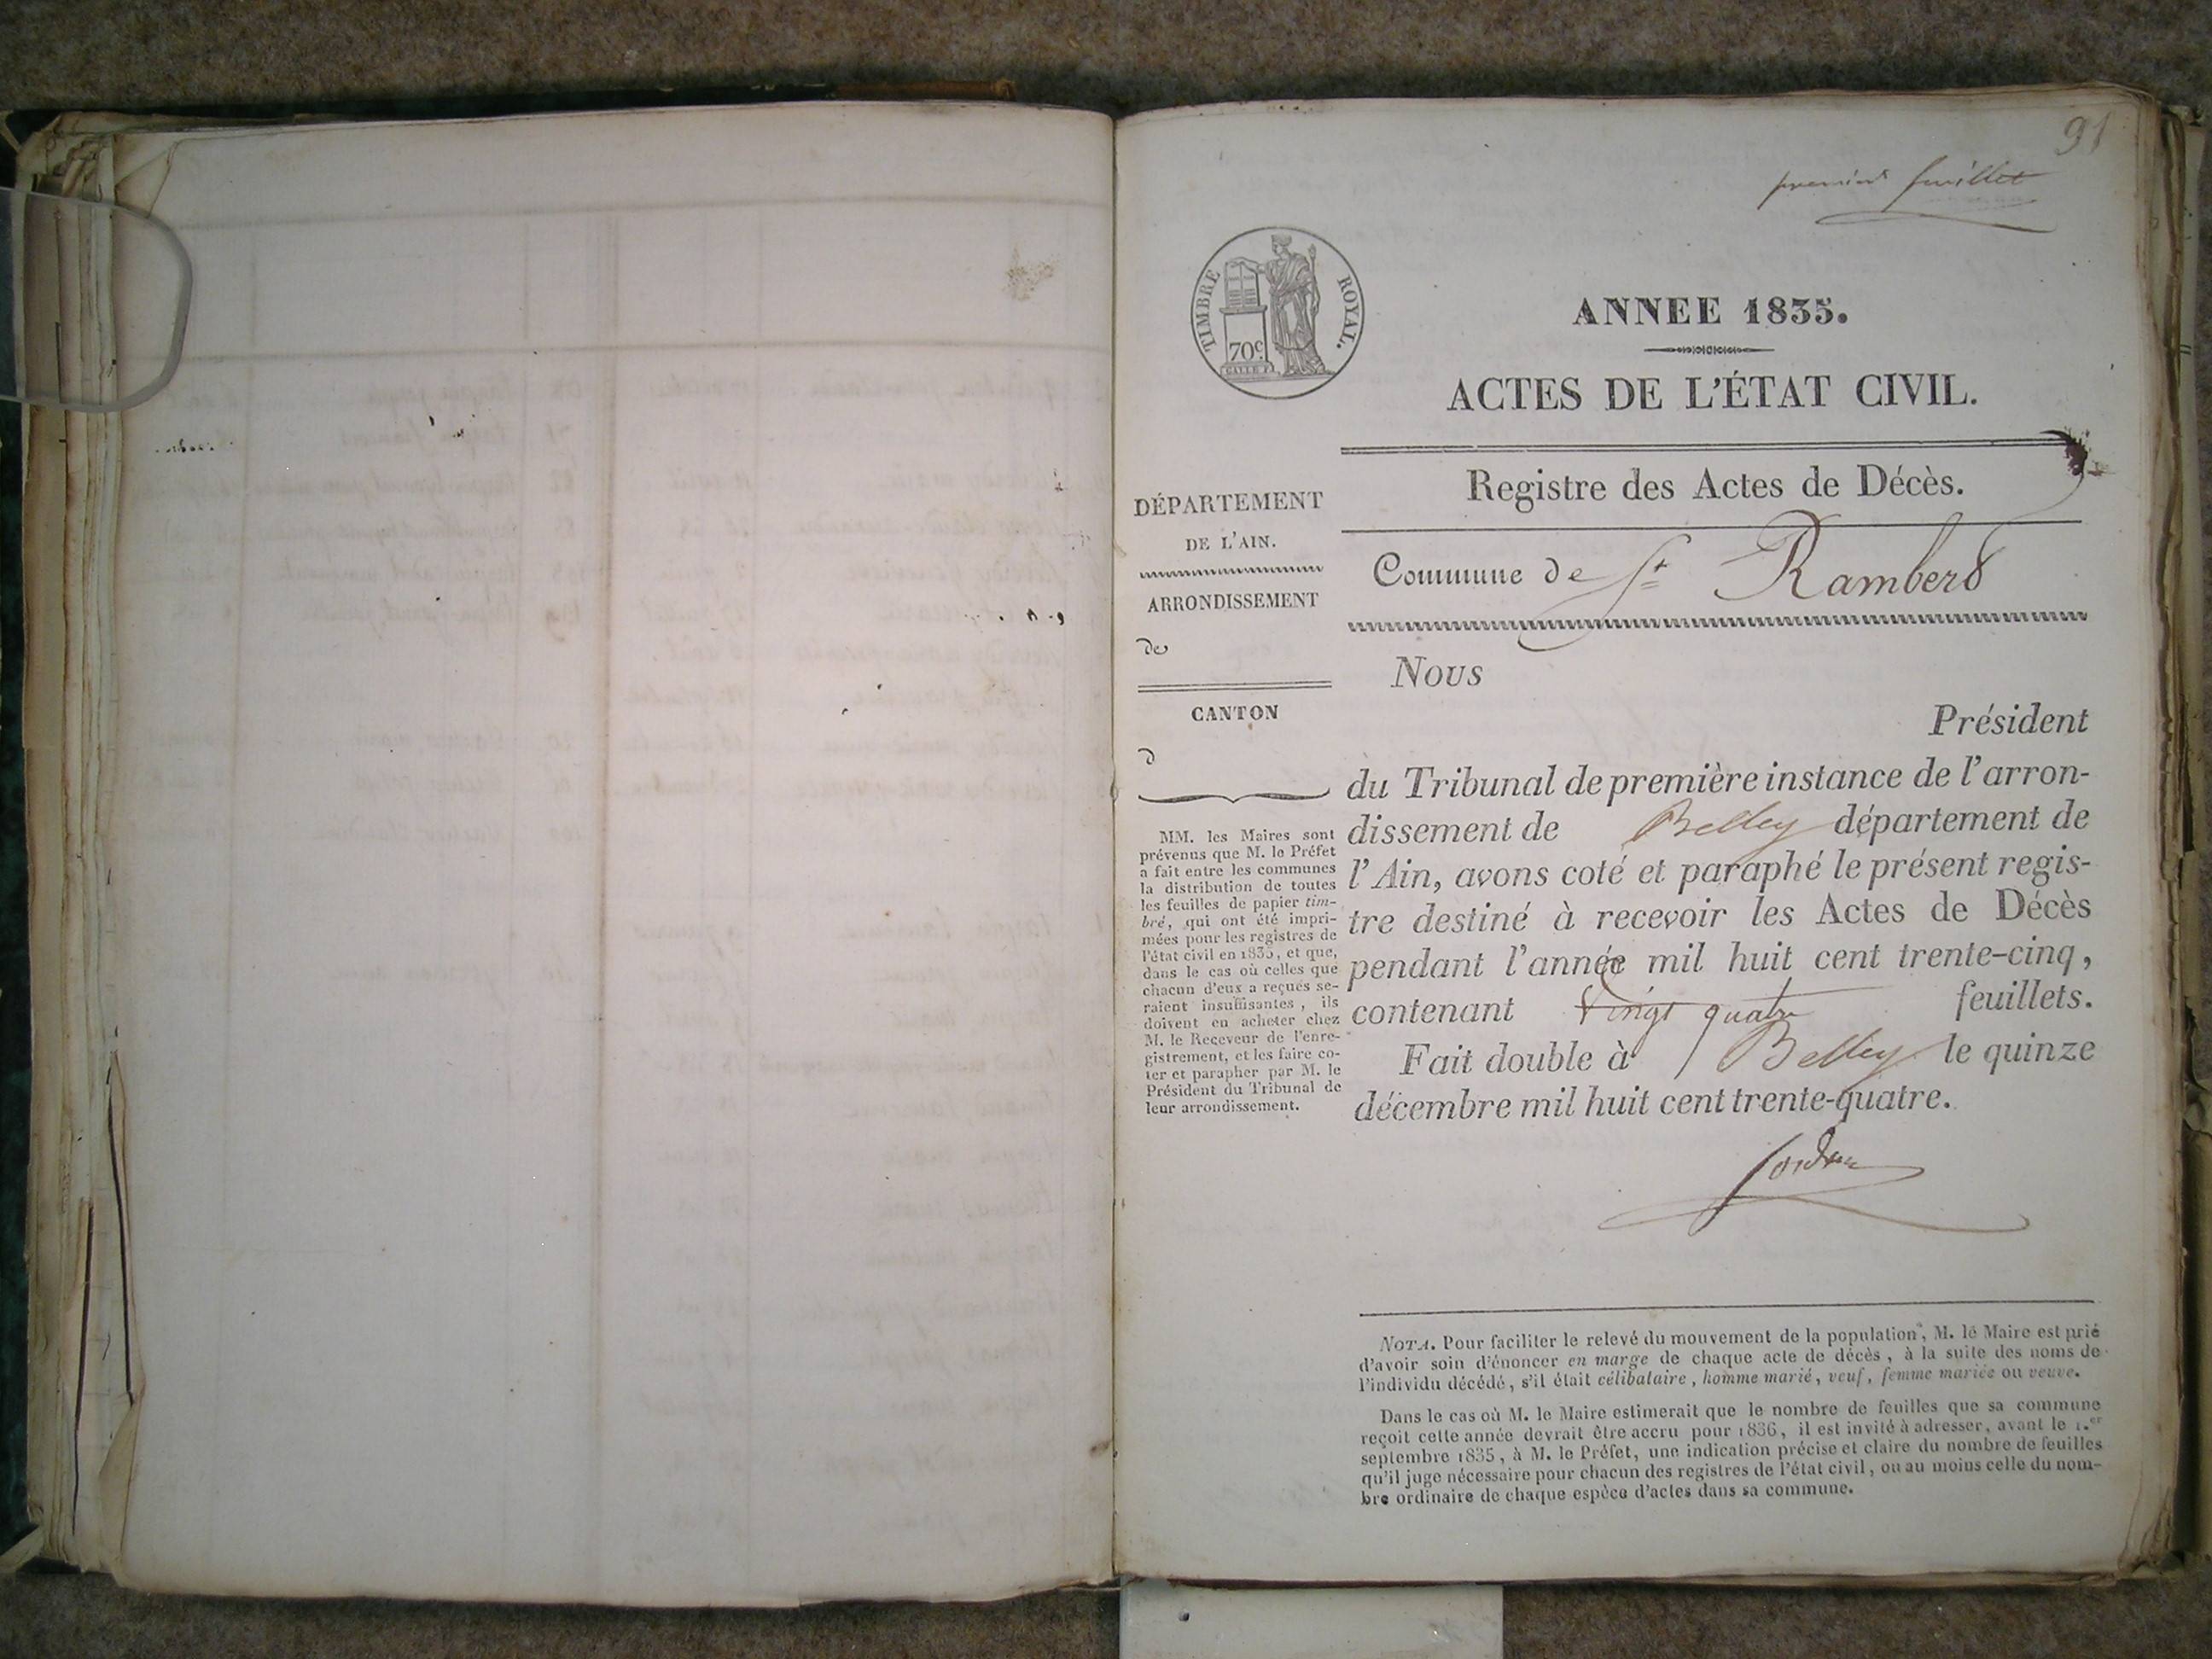 91
premier feuillet
TIMBRE ROYAL.
70c
ANNEE 1835.
ACTES DE L'ÉTAT CIVIL.
Registre des Actes de Décès.
Commune de St Rambert
DÉPARTEMENT
DE L'AIN.
ARRONDISSEMENT
de
CANTON
d
MM. les Maires sont
prévenus que M. le Préfet
a fait entre les communes
la distribution de toutes
les feuilles de papier tim-
bré, qui ont été impri-
mées pour les registres de
l'état civil en 1835, et que,
dans le cas où celles que
chacun d'eux a reçues se-
raient insuffisantes, ils
doivent en acheter chez
M. le Receveur de l'enre-
gistrement, et les faire co-
ter et parapher par M. le
Président du Tribunal de
leur arrondissement.
Nous
Président
du Tribunal de première instance de l'arron-
dissement de Belley département de
l'Ain, avons coté et paraphé le présent regis-
tre destiné à recevoir les Actes de Décès
pendant l'année mil huit cent trente-cinq,
contenant vingt quatre feuillets.
Fait double à Belley le quinze
décembre mil huit cent trente-quatre.
NOTA. Pour faciliter le relevé du mouvement de la population, M. le Maire est prié
d'avoir soin d'énoncer en marge de chaque acte de décès, à la suite des noms de
l'individu décédé, s'il était célibataire, homme marié, veuf, femme mariée ou veuve.
Dans le cas où M. le Maire estimerait que le nombre de feuilles que sa commune
reçoit cette année devrait être accru pour 1836, il est invité à adresser, avant le 1.er
septembre 1835, à M. le Préfet, une indication précise et claire du nombre de feuilles
qu'il juge nécessaire pour chacun des registres de l'état civil, ou au moins celle du nom-
bre ordinaire de chaque espèce d'actes dans sa commune.